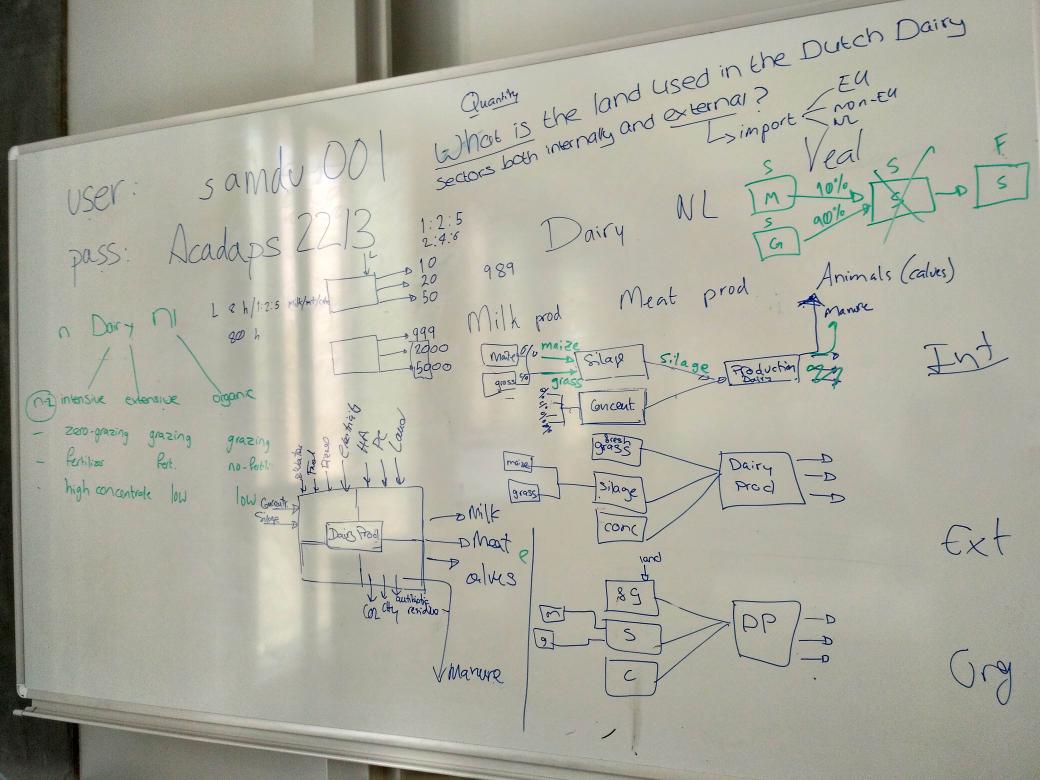 Quantity
What is the land used in the Dutch Dairy
sectors both internally and external?
import
EU
non-EU
NL
user: samdu 001
pass: Acadaps 2213
1:2:5
2:4:6
10
20
50
989
999
2000
5000
L 8 h/1:2:5
800 h
n Dairy nl
n-2 intensive extensive organic
- zero-grazing grazing grazing
- fertilizer fert. no-fert.
- high concentrate low low
Electricity
HA
PC
Land
Silage
Dairy Prod
Milk
Meat
calves
CO2 CH4 antibiotic residue
Manure
Dairy
NL
Veal
S
M
10%
S
G
90%
S
S
F
S
Milk prod
Meat prod
Animals (calves)
Manure
maize
%
maize
grass
%
grass
Silage
Silage
Concent
Production
Dairy
Int
fresh
grass
maize
grass
Silage
conc
Dairy
Prod
Ext
e
land
m
g
S
C
DP
Org